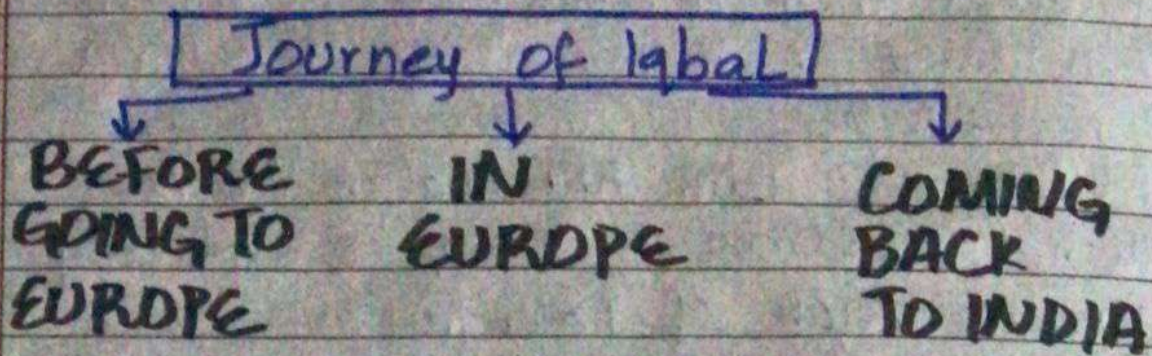 Journey of Iqbal
BEFORE
GOING TO
EUROPE
IN
EUROPE
COMING
BACK
TO INDIA